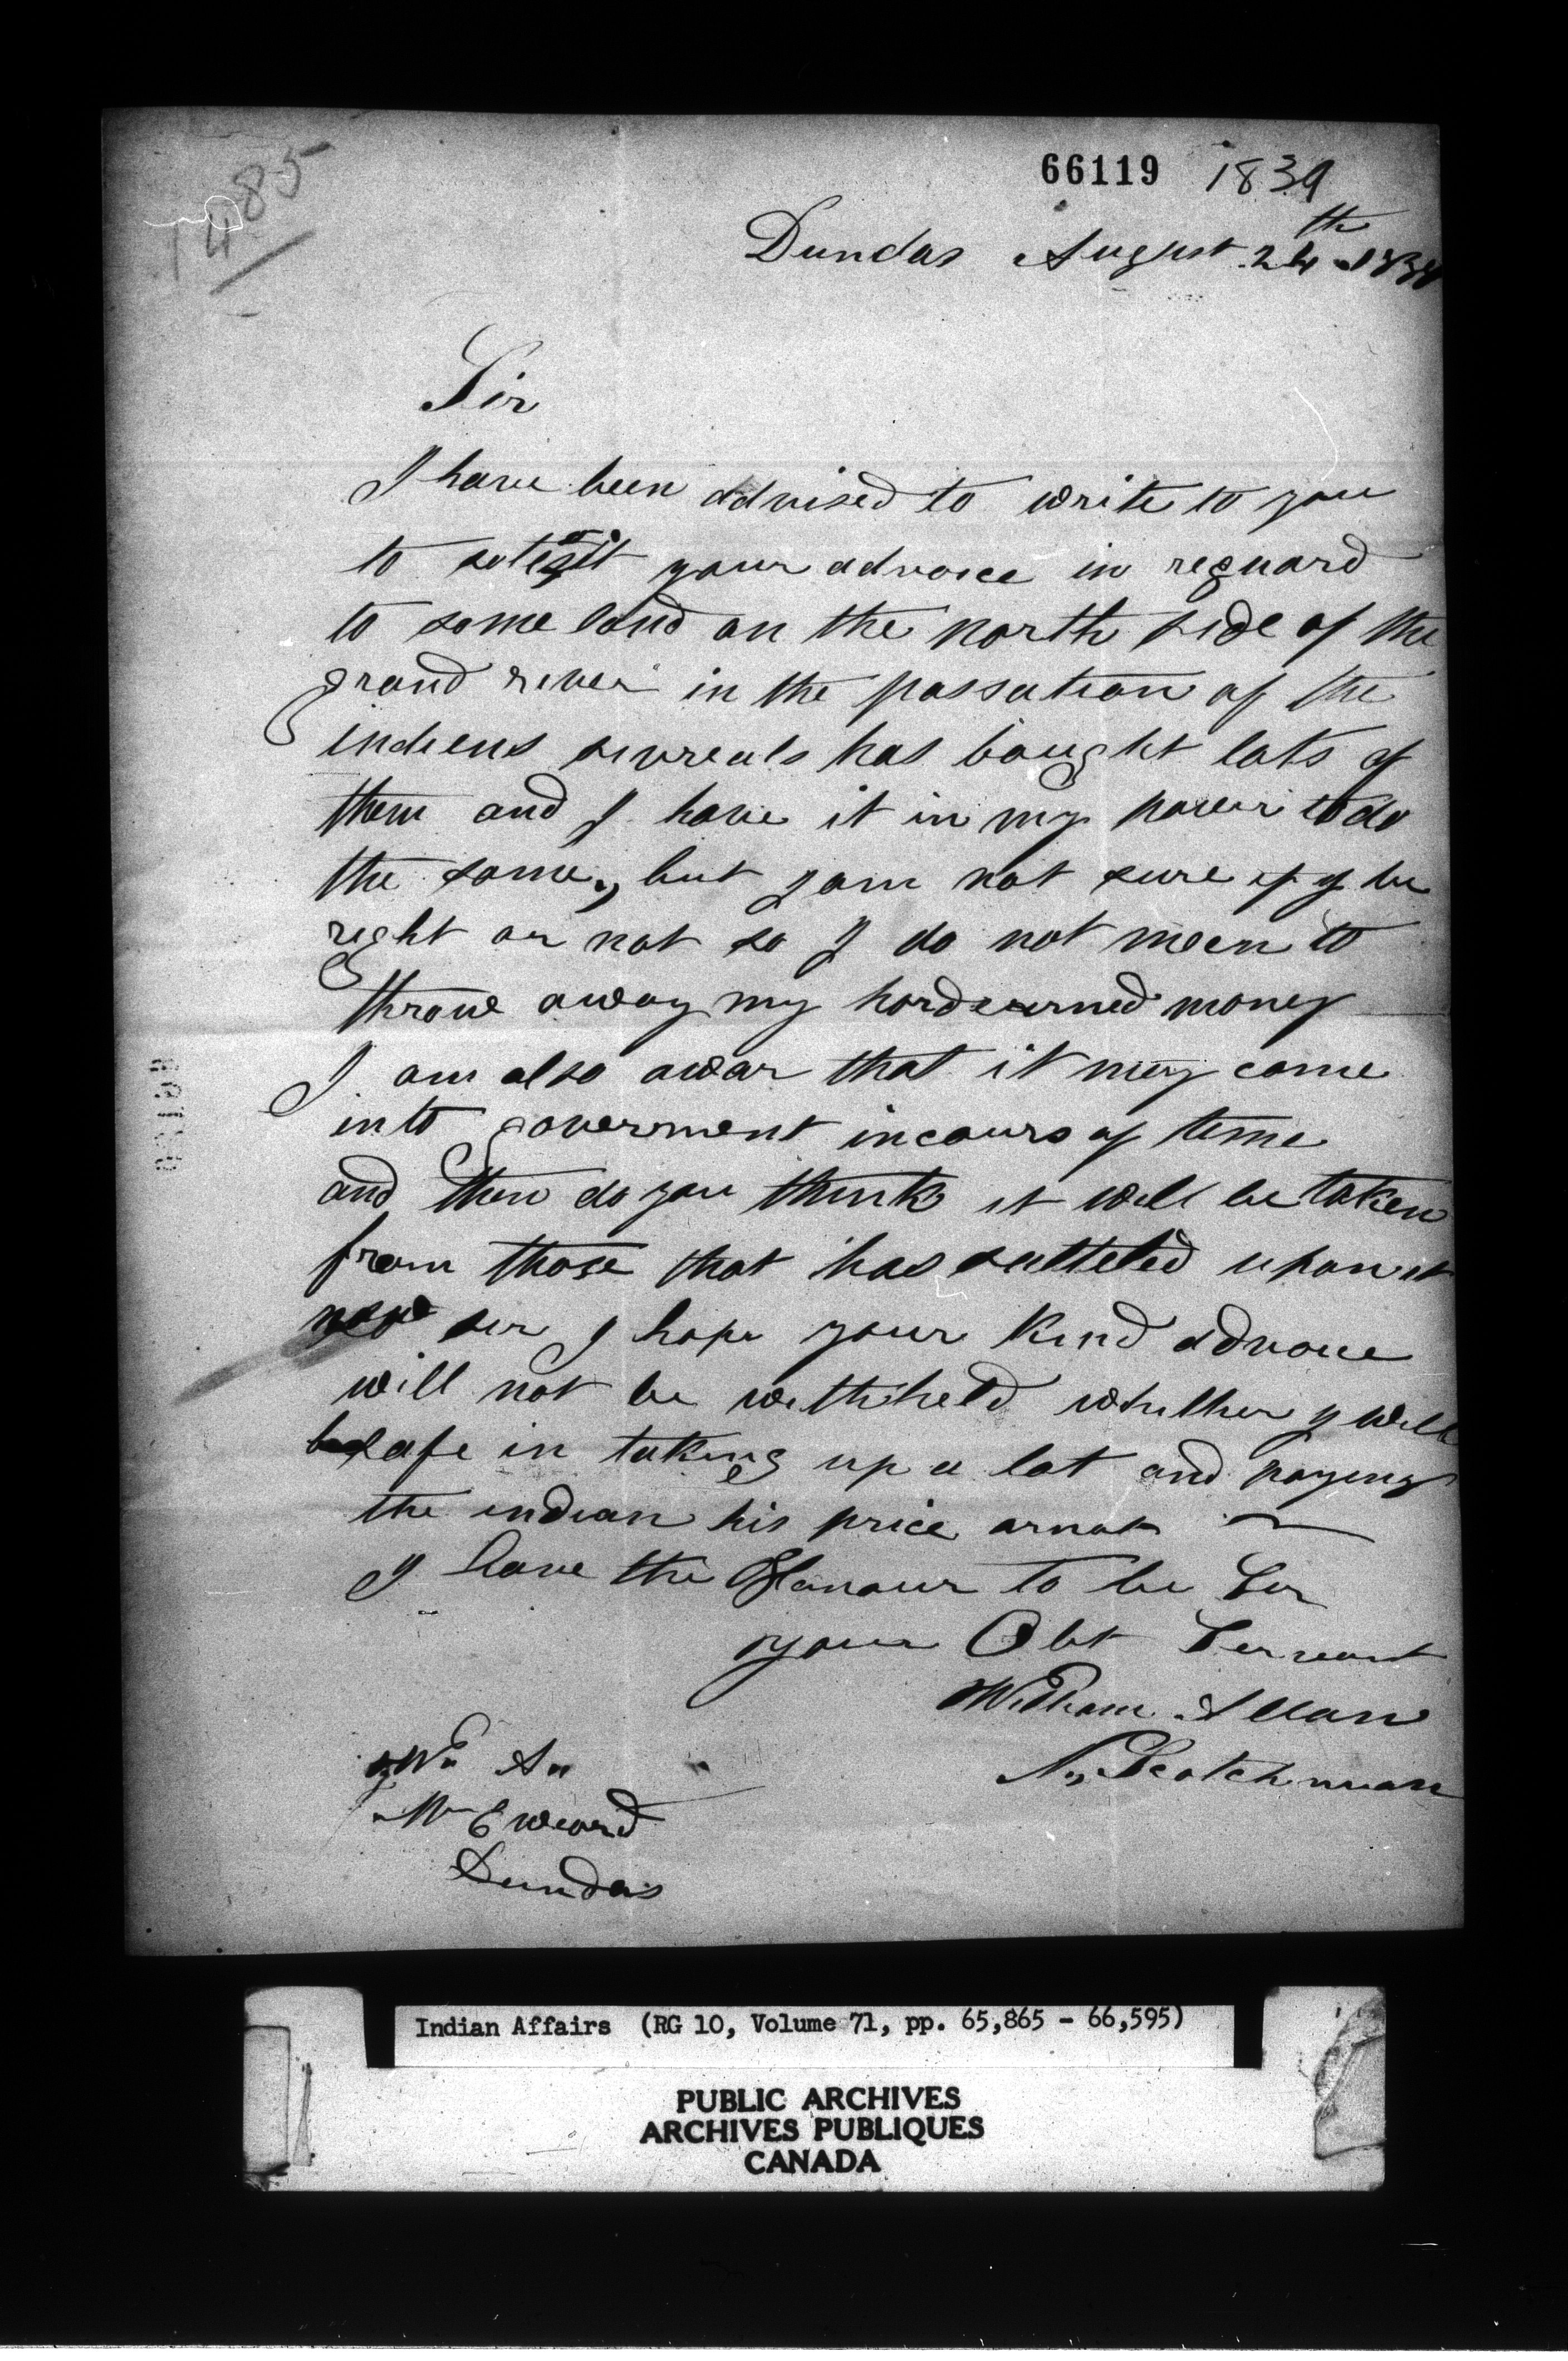 1485
66119 1839
Dundas August 24th 1839
Sir
I have been advised to write to you
to your advoice in reguard
to some land on the north side of the
grand river in the possation of the
indiens sevreals has bought lots of
them and I have it in my power to do
the same, but I am not sure if I be
right or not so I do not meen to
throue away my hardearned money
I am also awar that it may come
into goverment incours of time
and then do you think it will be taken
from those that has settteled upon it
now sir I hope your kind advoice
will not be withheld whether I will
be safe in taking up a lot and paying
the indian his price or not
I have the Honour to be Ser
your Obt Servant
William Allan
A Scotchman
Wm An
Mr Eweard
Dundas
Indian Affairs (RG 10, Volume 71, pp. 65,865 - 66,595)
PUBLIC ARCHIVES
ARCHIVES PUBLIQUES
CANADA